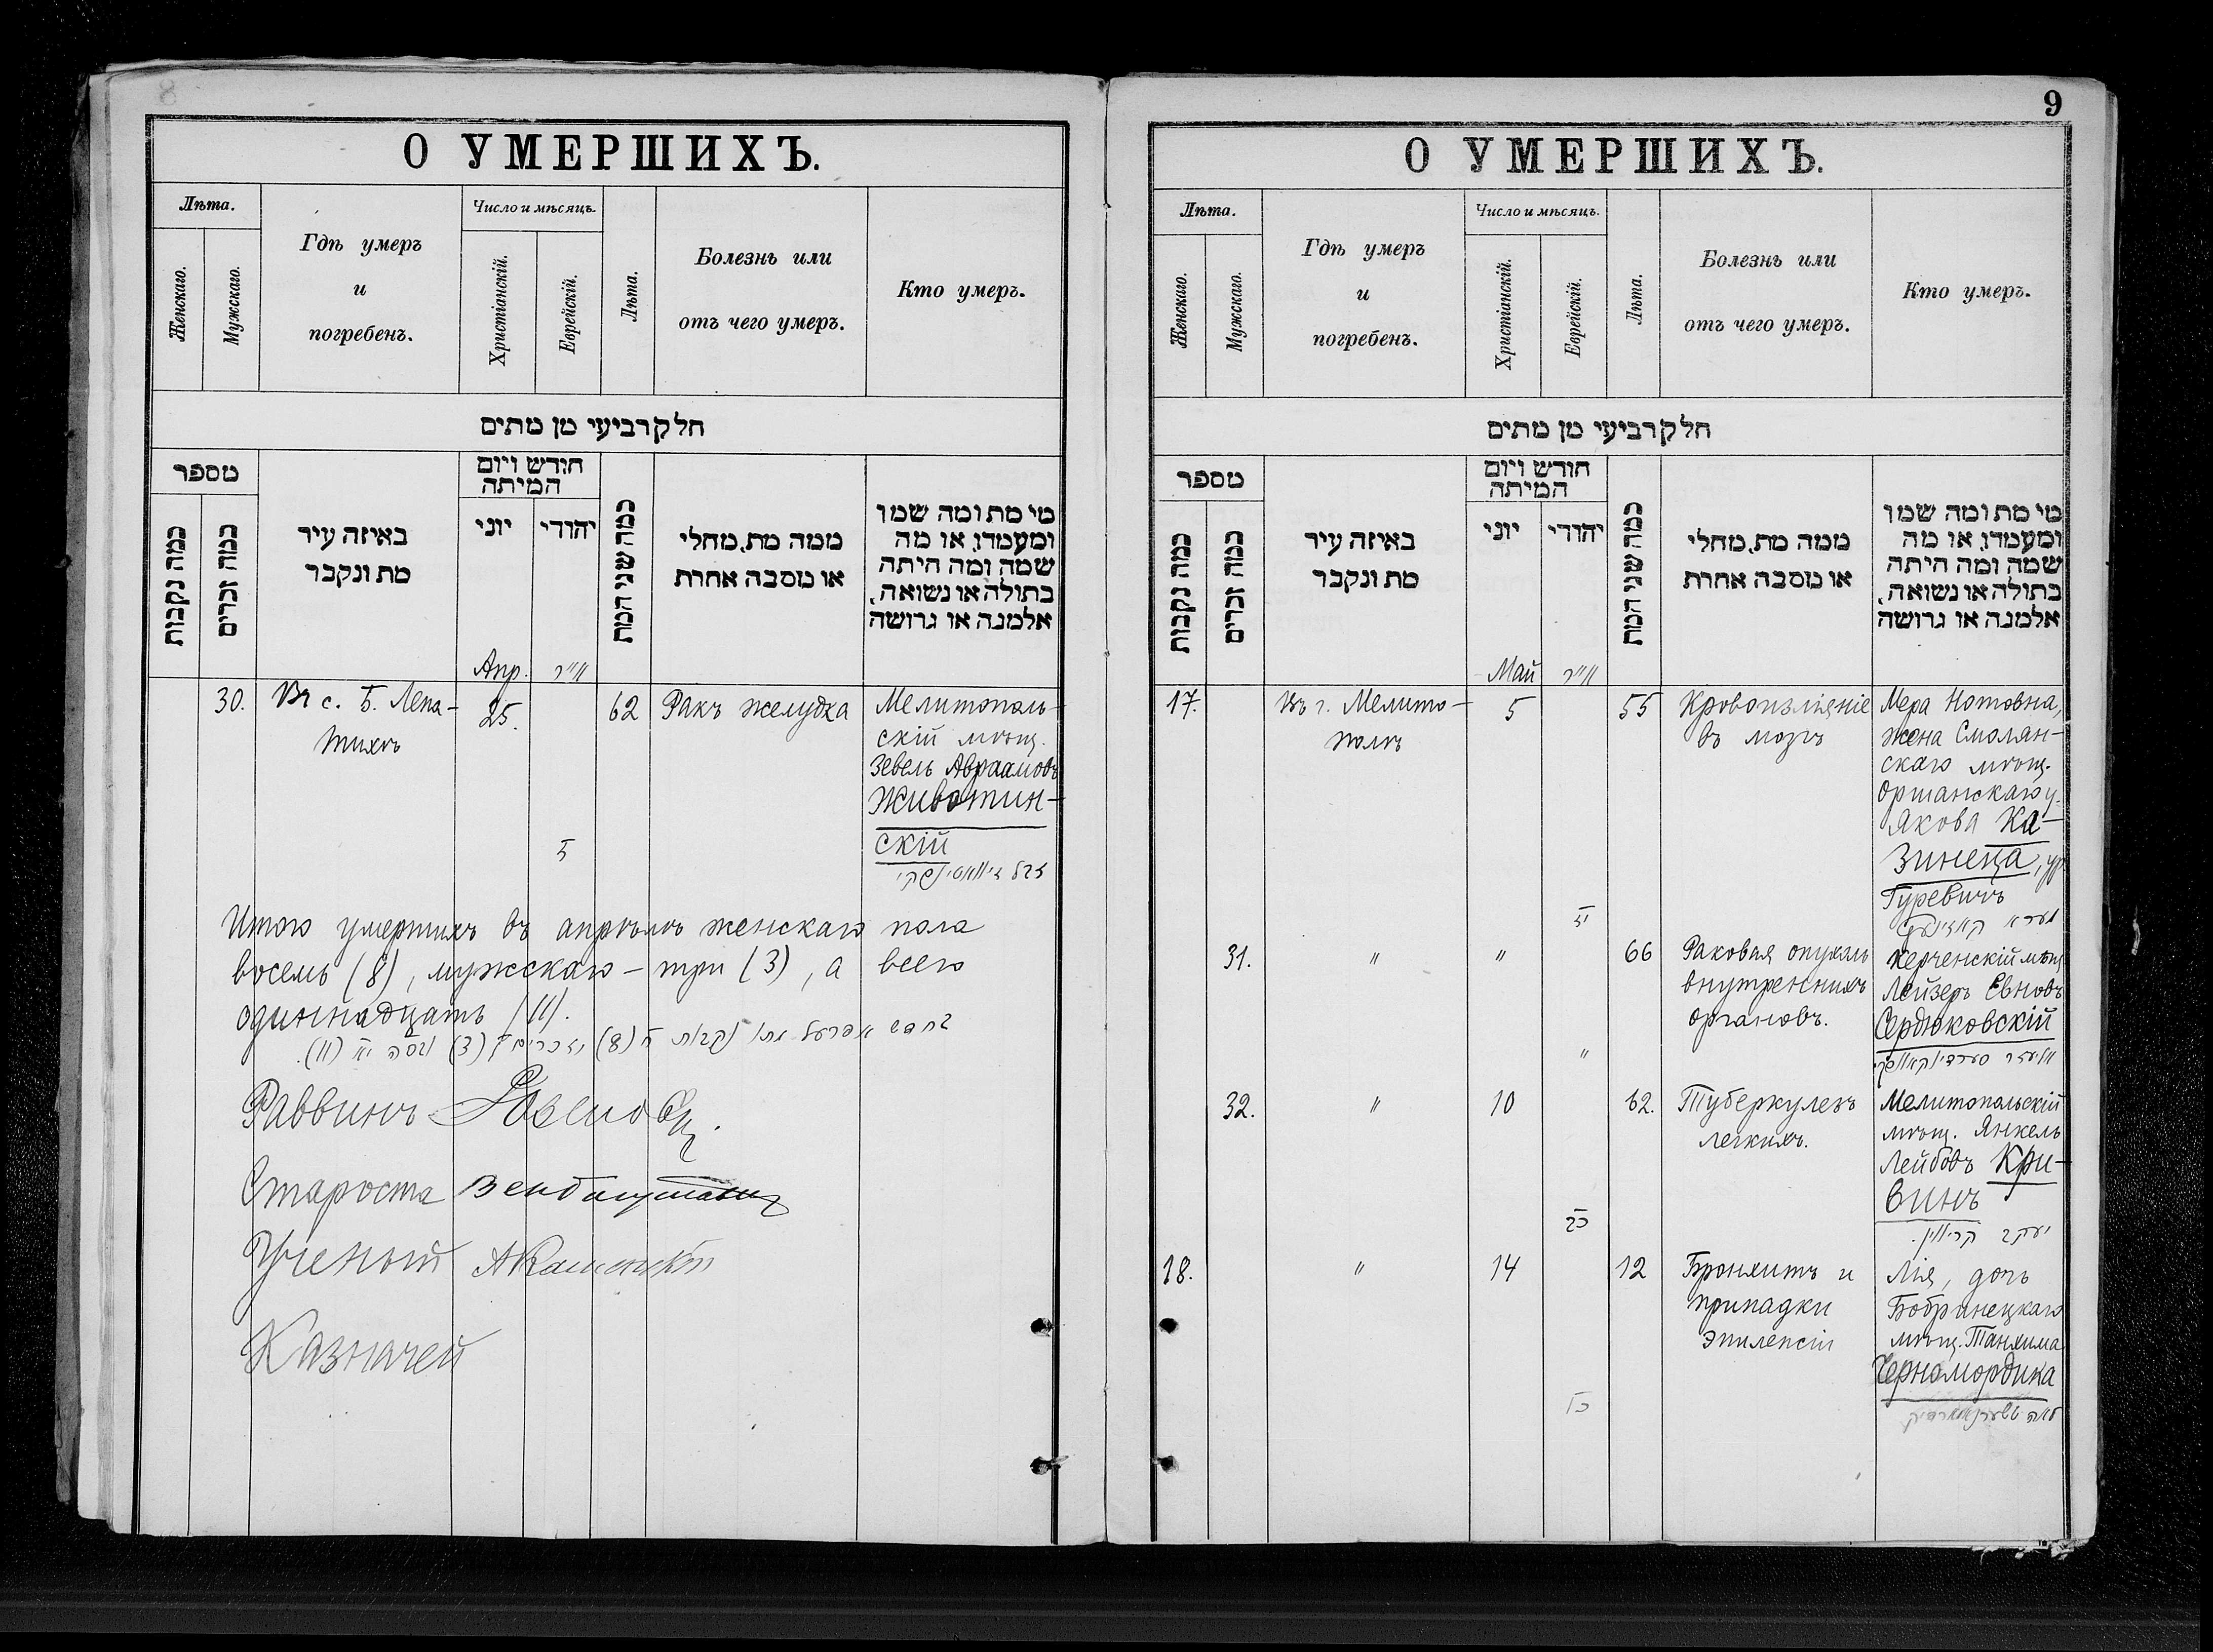 8
О УМЕРШИХЪ.
Лѣта.
Женскаго.
Мужскаго.
Гдѣ умеръ
и
погребенъ.
Число и мѣсяцъ.
Христіанскій.
Еврейскій.
Лѣта.
Болезнь или
отъ чего умеръ.
Кто умеръ.
חלק רביעי מן מתים
מספר
כמה נקבות
כמה זכרים
באיזה עיר
מת ונקבר
חודש ויום
המיתה
יוני
יהודי
כמה שני המת
ממה מת, מחלי
או מסבה אחרת
מי מת ומה שמו
ומעמדו, או מה
שמה ומה היתה
בתולה או נשואה,
אלמנה או גרושה
Апр.
אייר
30.
Въ с. Б. Лепа-
тихѣ
25.
ה
62
Ракъ желудка
Мелитополь-
скій мѣщ.
Зевель Авраамовъ
Животин-
скій
Итого умершихъ въ апрѣлѣ женскаго пола
восемь (8), мужскаго - три (3), а всего
одиннадцать (11).
בחדש אפרעל מתו נקבות ח (8) וזכרים ג (3) ובסה יא (11).
Раввинъ
Староста
Ученый
Казначей
9
О УМЕРШИХЪ.
Лѣта.
Женскаго.
Мужскаго.
Гдѣ умеръ
и
погребенъ.
Число и мѣсяцъ.
Христіанскій.
Еврейскій.
Лѣта.
Болезнь или
отъ чего умеръ.
Кто умеръ.
חלק רביעי מן מתים
מספר
כמה נקבות
כמה זכרים
באיזה עיר
מת ונקבר
חודש ויום
המיתה
יוני
יהודי
כמה שני המת
ממה מת, מחלי
או מסבה אחרת
מי מת ומה שמו
ומעמדו, או מה
שמה ומה היתה
בתולה או נשואה,
אלמנה או גרושה
Май
אייר
17.
Въ г. Мелито-
полѣ
5
55
Кровоизліяніе
въ мозгъ
Мера Нотовна,
жена Смолян-
скаго мѣщ.
Оршанскаго у.
Якова Ка-
зинеца, ур.
Гуревичъ
31.
"
"
"
66
Раковая опухоль
внутреннихъ
органовъ.
Керченскій мѣщ.
Лейзеръ Евновъ
Сердюковскій
32.
"
10
62.
Туберкулезъ
легкихъ.
Мелитопольскій
мѣщ. Янкель
Лейбовъ Кри-
винъ
יעקב קריווין.
18.
"
14
12
Бронхитъ и
припадки
эпилепсіи
Лія, дочь
Бобринецкаго
мѣщ. Танхима
Черномордика